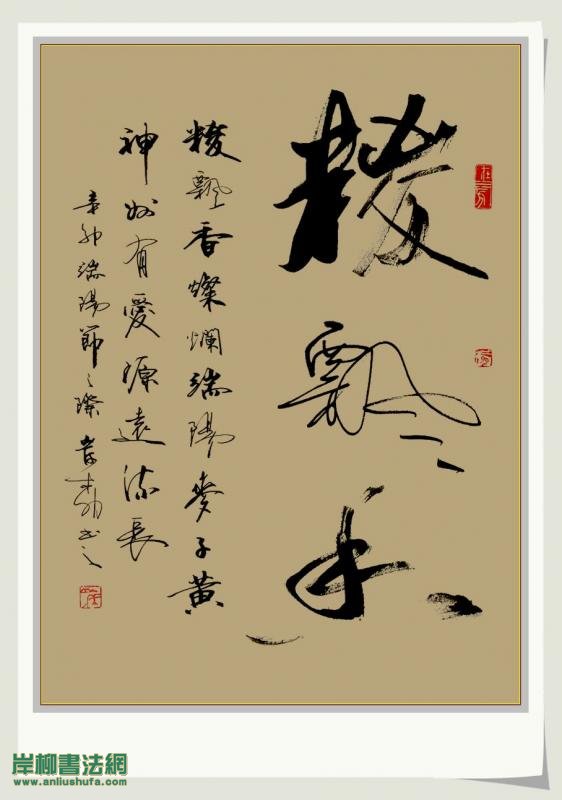 糉飄香
糉飄香燦爛端陽麥子黄
神州有愛源遠流長
辛卯端陽節之際書之
岸柳書法網
www.anliushufa.com